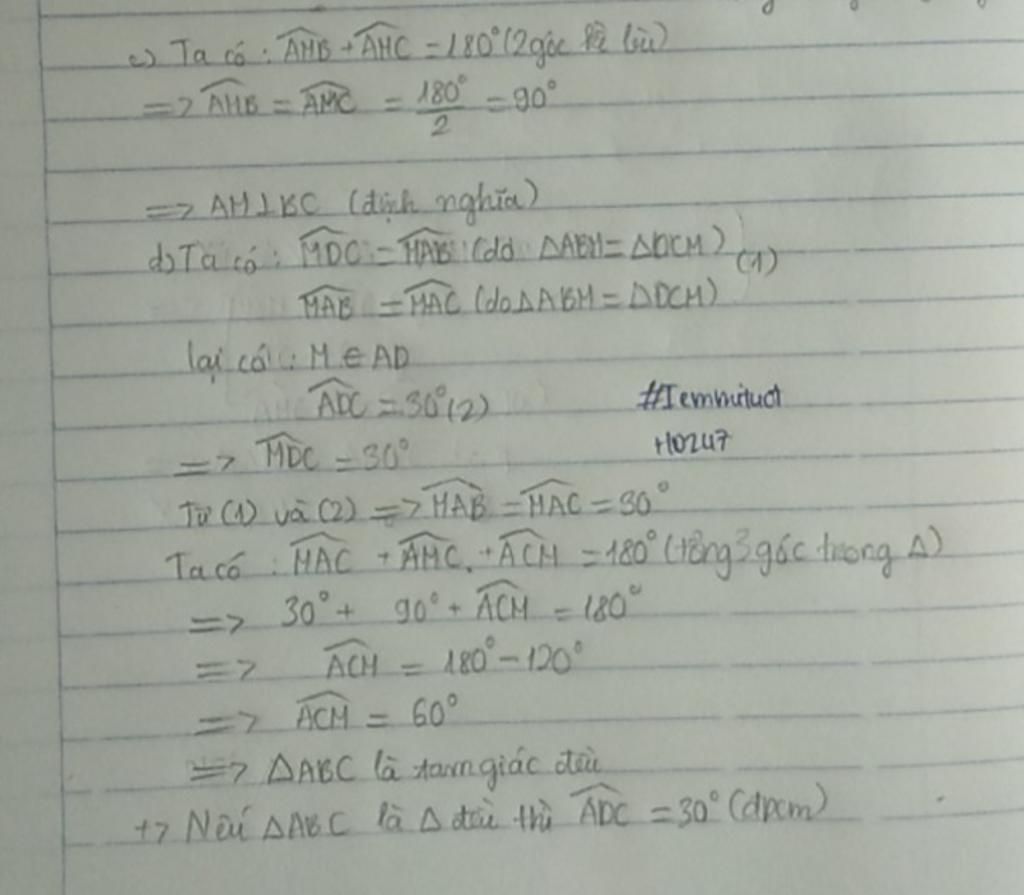 c) Ta có : AMB + AMC = 180° (2 góc kề bù)
=> AMB = AMC = 180°/2 = 90°
=> AM⊥BC (định nghĩa)
d) Ta có : MDC = MAB (do ΔABM = ΔDCM) (1)
MAB = MAC (do ΔABM = ΔDCM)
lại có : M ∈ AD
ADC = 30° (2)
#Iemmituot
=> MDC = 30°
+10247
Từ (1) và (2) => MAB = MAC = 30°
Ta có : MAC + AMC + ACM = 180° (tổng 3 góc trong Δ)
=> 30° + 90° + ACM = 180°
=> ACM = 180° - 120°
=> ACM = 60°
=> ΔABC là tam giác đều
+> Nếu ΔABC là Δ đều thì ADC = 30° (đpcm)